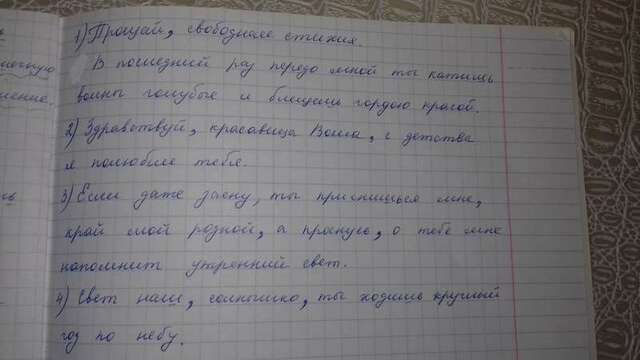 1) Прощай, свободная стихия.
В последний раз передо мной ты катишь
волны голубые и блещешь гордою красой.
2) Здравствуй, красавица Волга, с детства
я полюбила тебя.
3) Если даже засну, ты приснишься мне,
край мой родной, а проснусь, о тебе мне
напомнит утренний свет.
4) Свет наш, солнышко, ты ходишь круглый
год по небу.